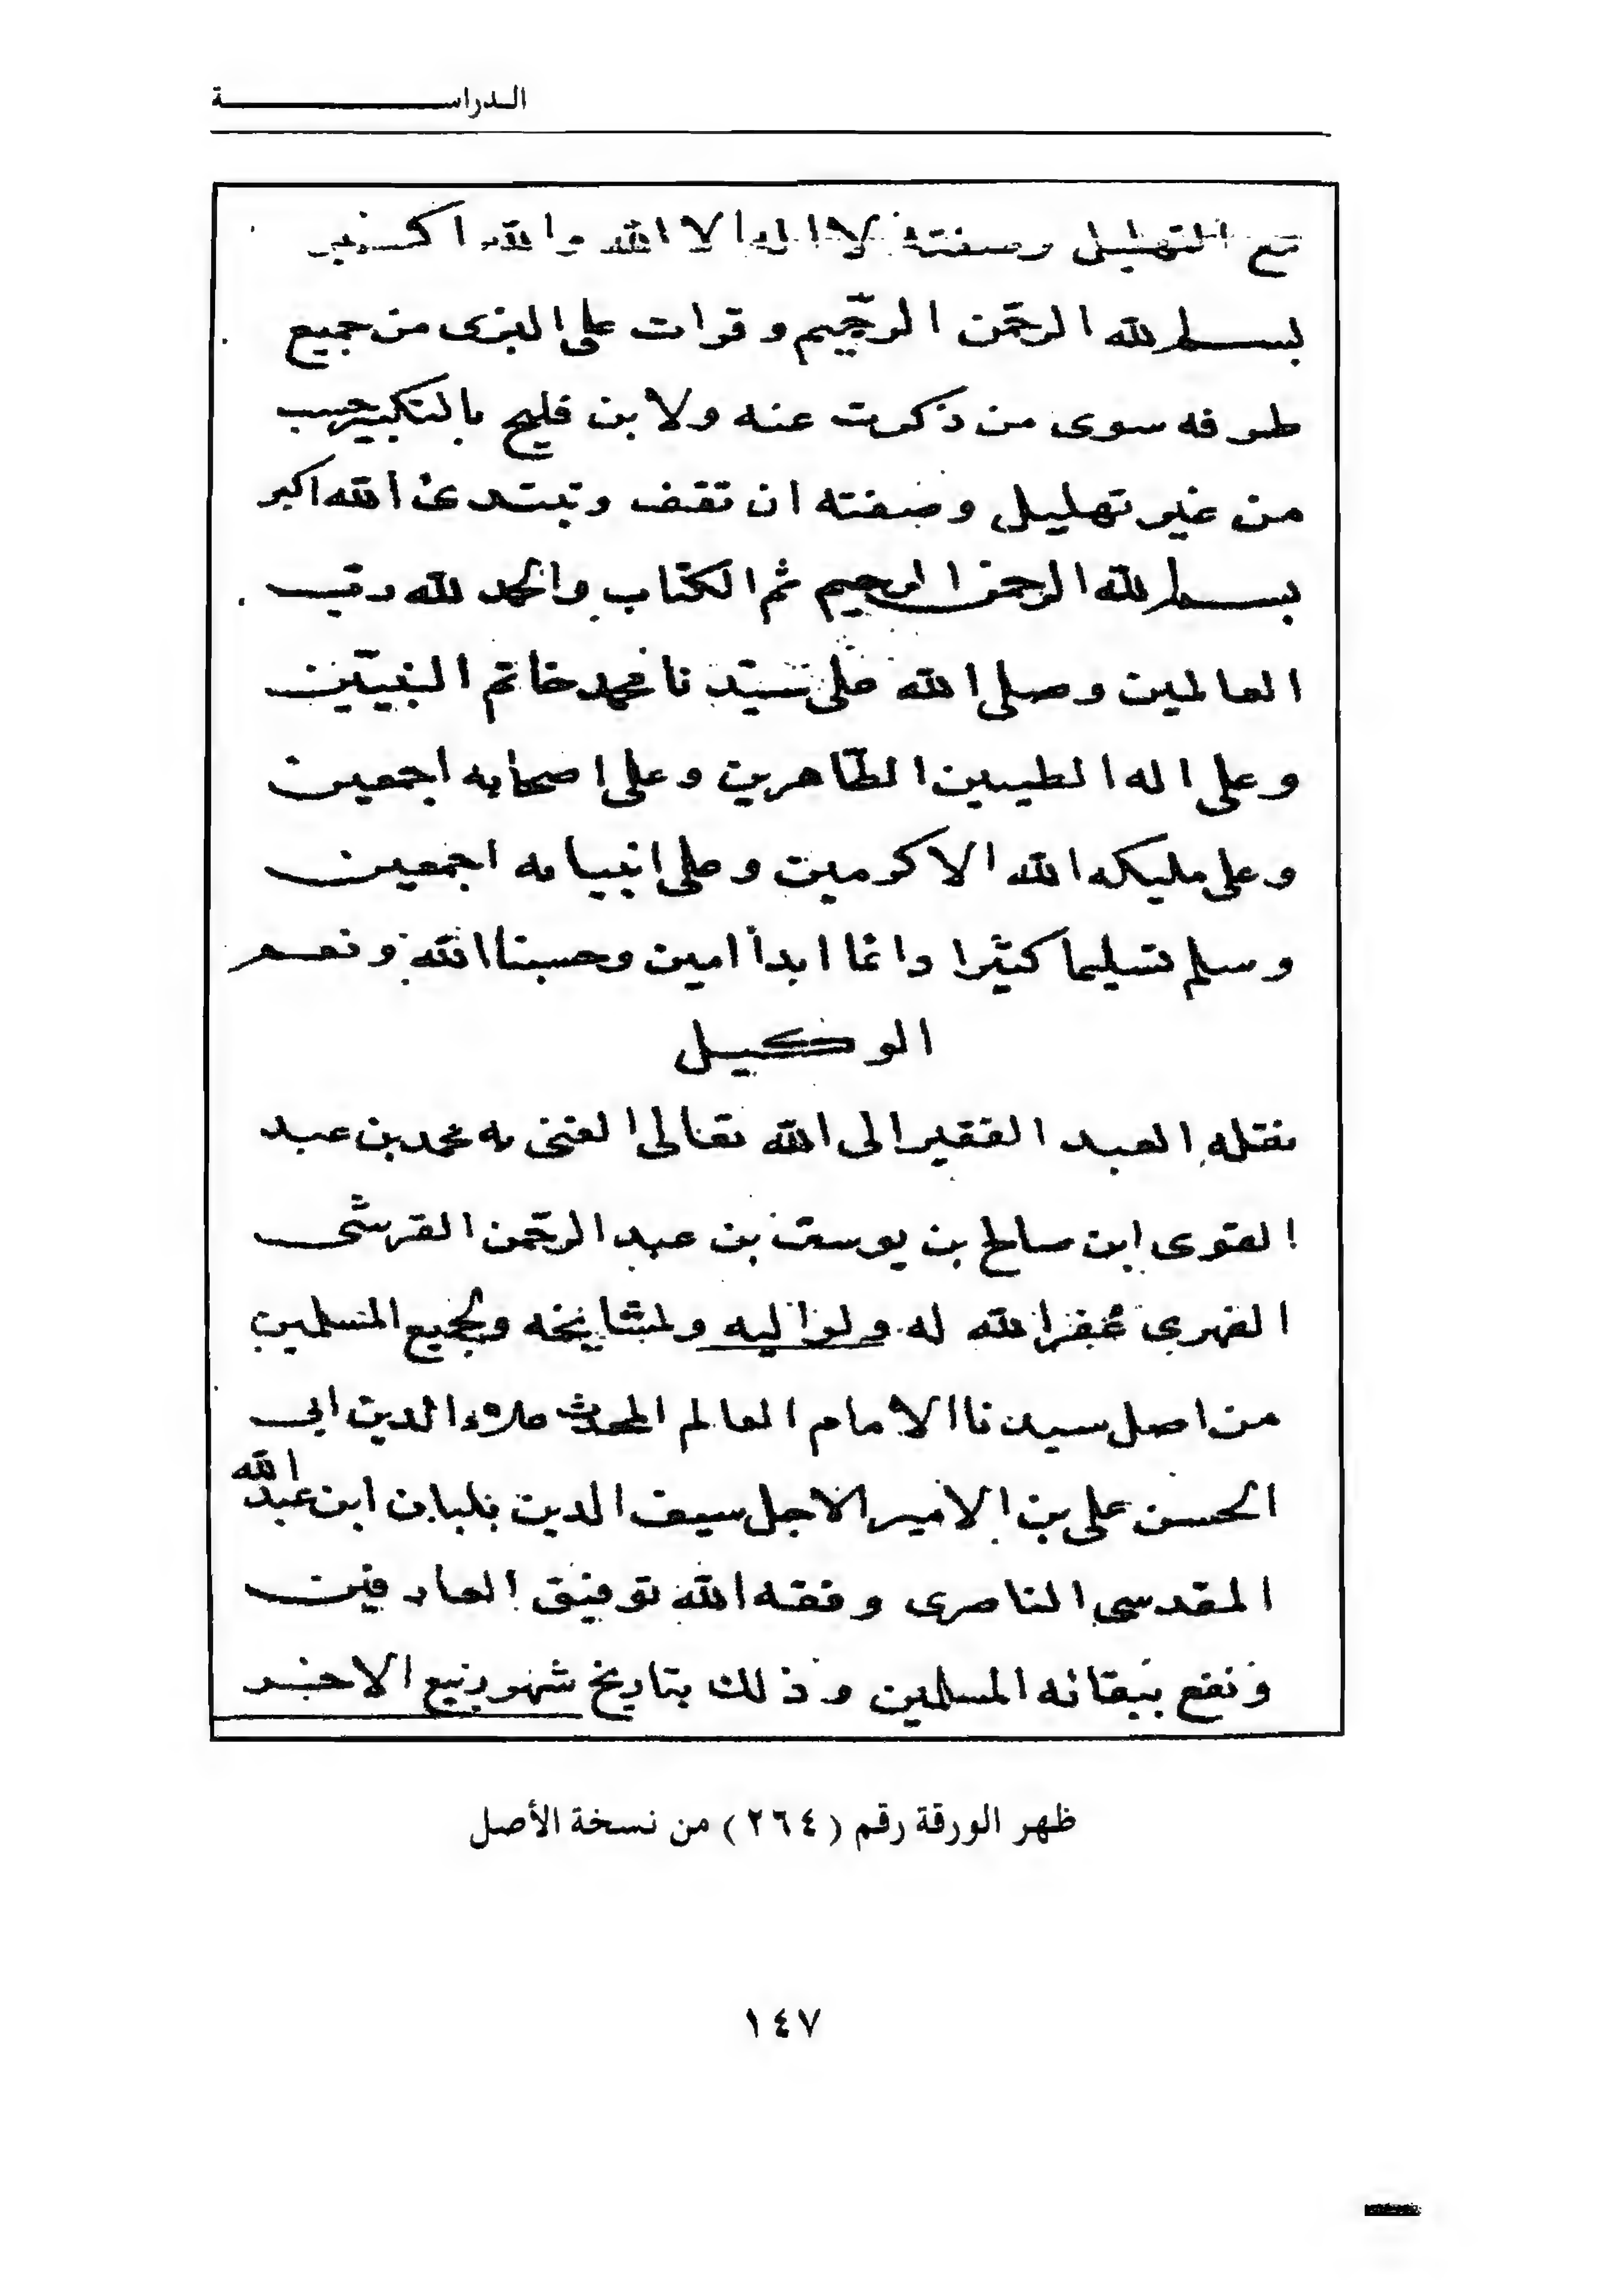 الدراسة
مع التهليل وصفته لا اله الا الله والله اكبر
بسم الله الرحمن الرحيم وقرات على البزى من جميع
طرقه سوى من ذكرت عنه ولابن فليح بالتكبير حسب
من غير تهليل وصفته ان تقف وتبتدئ الله اكبر
بسم الله الرحمن الرحيم ثم الكتاب والحمد لله رب
العالمين وصلى الله على سيدنا محمد خاتم النبيين
وعلى اله الطيبين الطاهرين وعلى اصحابه اجمعين
وعلى مليكه الله الاكرمين وعلى انبيايه اجمعين
وسلم تسليما كثيرا دائما ابدا امين وحسبنا الله ونعم
الوكيل
نقله العبد الفقير الى الله تعالى الغنى به محمد بن عبد
القوى ابن صالح بن يوسف بن عبد الرحمن القرشى
الفهرى غفر الله له ولوالديه ولمشايخه ولجميع المسلمين
من اصل سيدنا الامام العالم المحدث علاء الدين ابى
الحسن على بن الامير الاجل سيف الدين بلبان ابن عبد الله
المقدسى الناصرى وفقه الله توفيق العارفين
ونفع ببقائه المسلمين وذلك بتاريخ شهر ربيع الاخر
ظهر الورقة رقم (٢٦٤) من نسخة الأصل
١٤٧